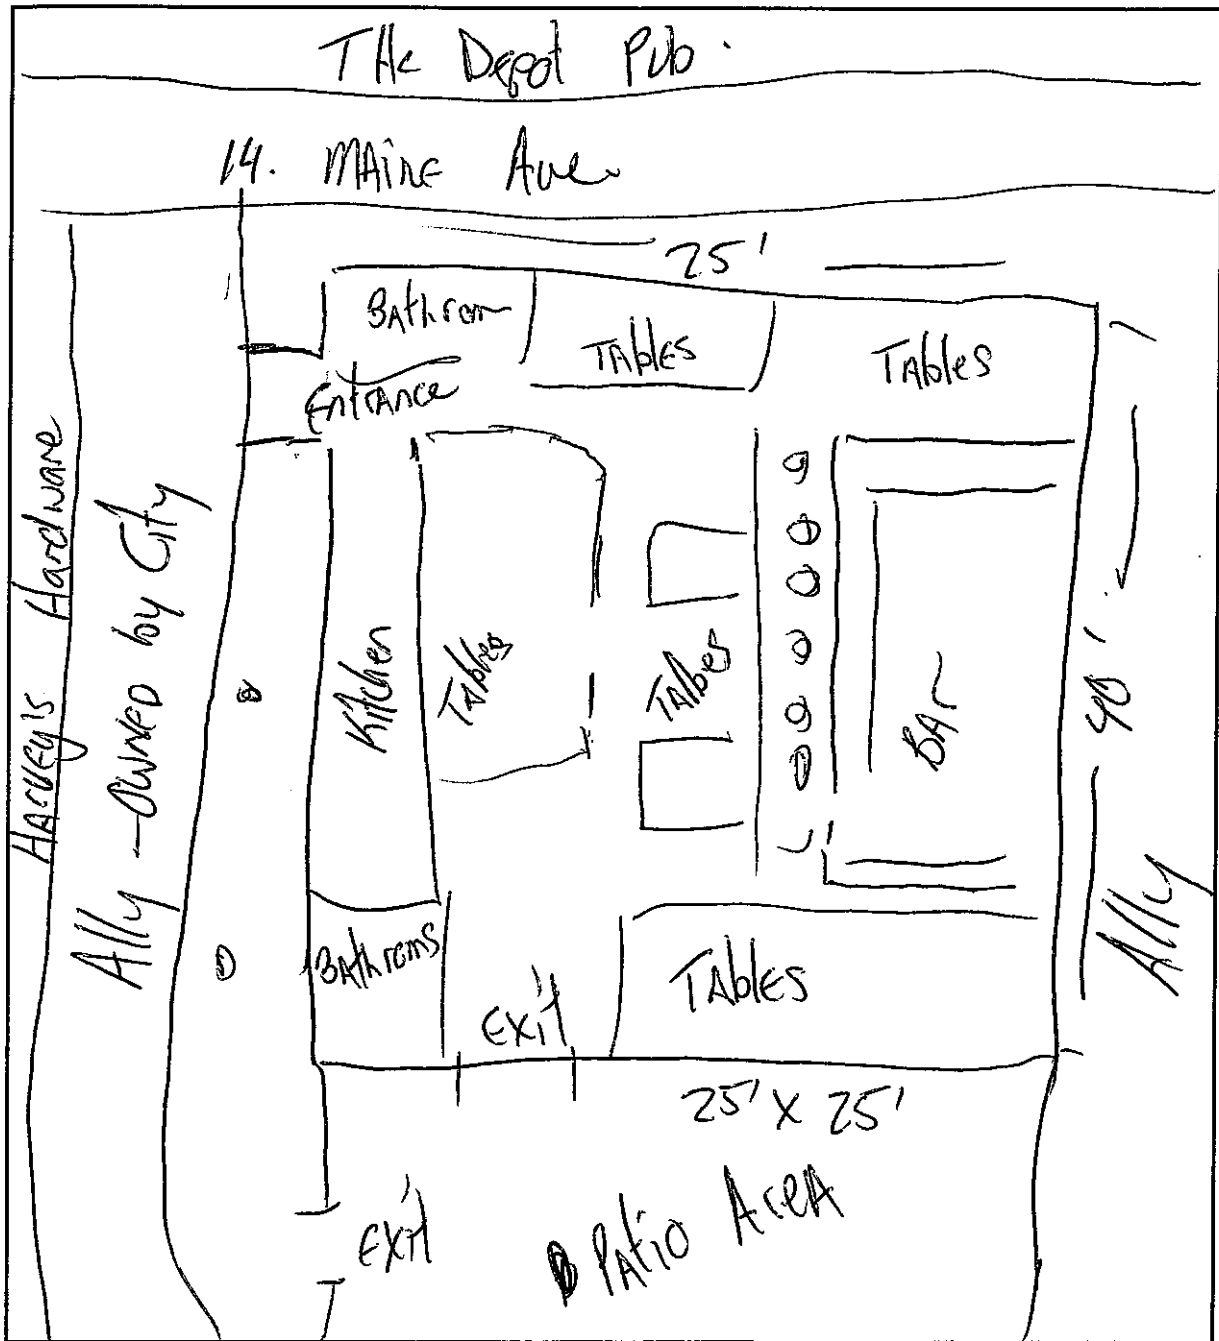 THe Depot Pub.
14. MAiNE Ave.
25'
BAthrom
TABles
TABles
EntrANce
Harvey's Hardware
Ally - OWNED by City
Kitchen
TABles
TABles
BAr
40'
Ally
BAthroms
Exit
TABles
25' X 25'
Exit
PAtiO AreA